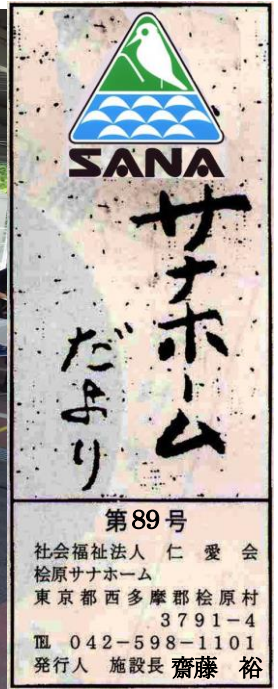 SANA
サナホーム
だより
第89号
社会福祉法人 仁愛会
桧原サナホーム
東京都西多摩郡桧原村
3791-4
℡ 042-598-1101
発行人 施設長 齋藤 裕